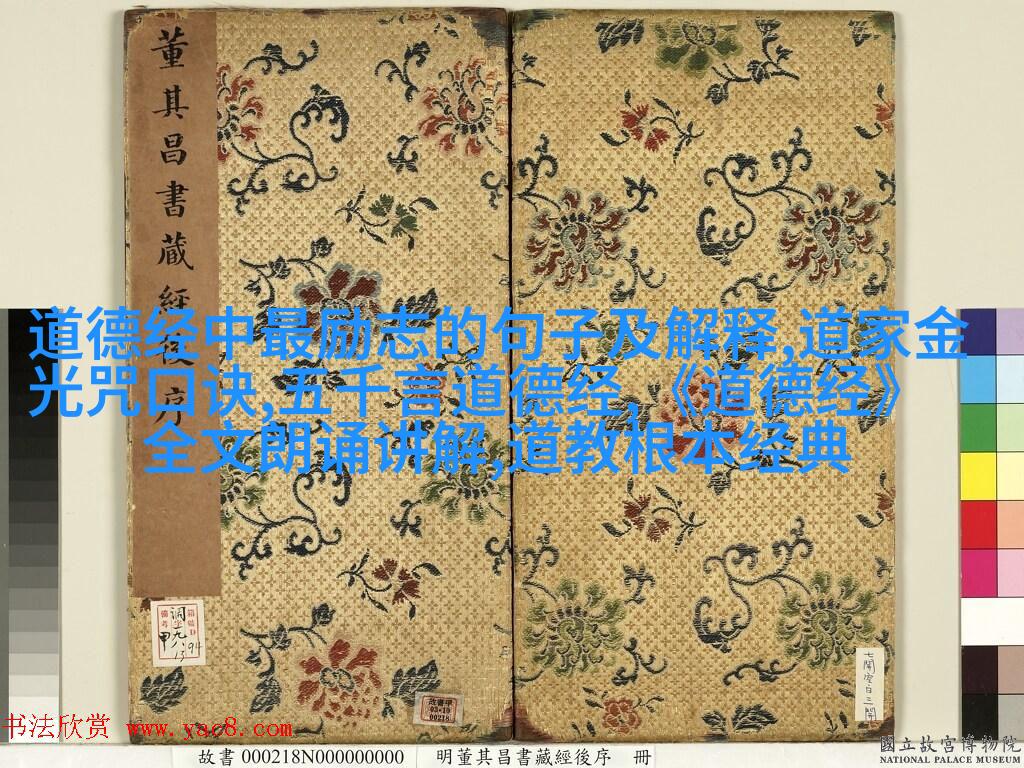 董其昌書藏經後序
道德经中最励志的句子及解释,道家金
光咒口诀,五千言道德经,《道德经》
全文朗诵讲解,道教根本经典
故書甲
03•10
00218
七開空白三開
书法欣赏 www.yac8.com
故書 000218N000000000
明董其昌書藏經後序 冊
國立故宮博物院
NATIONAL PALACE MUSEUM